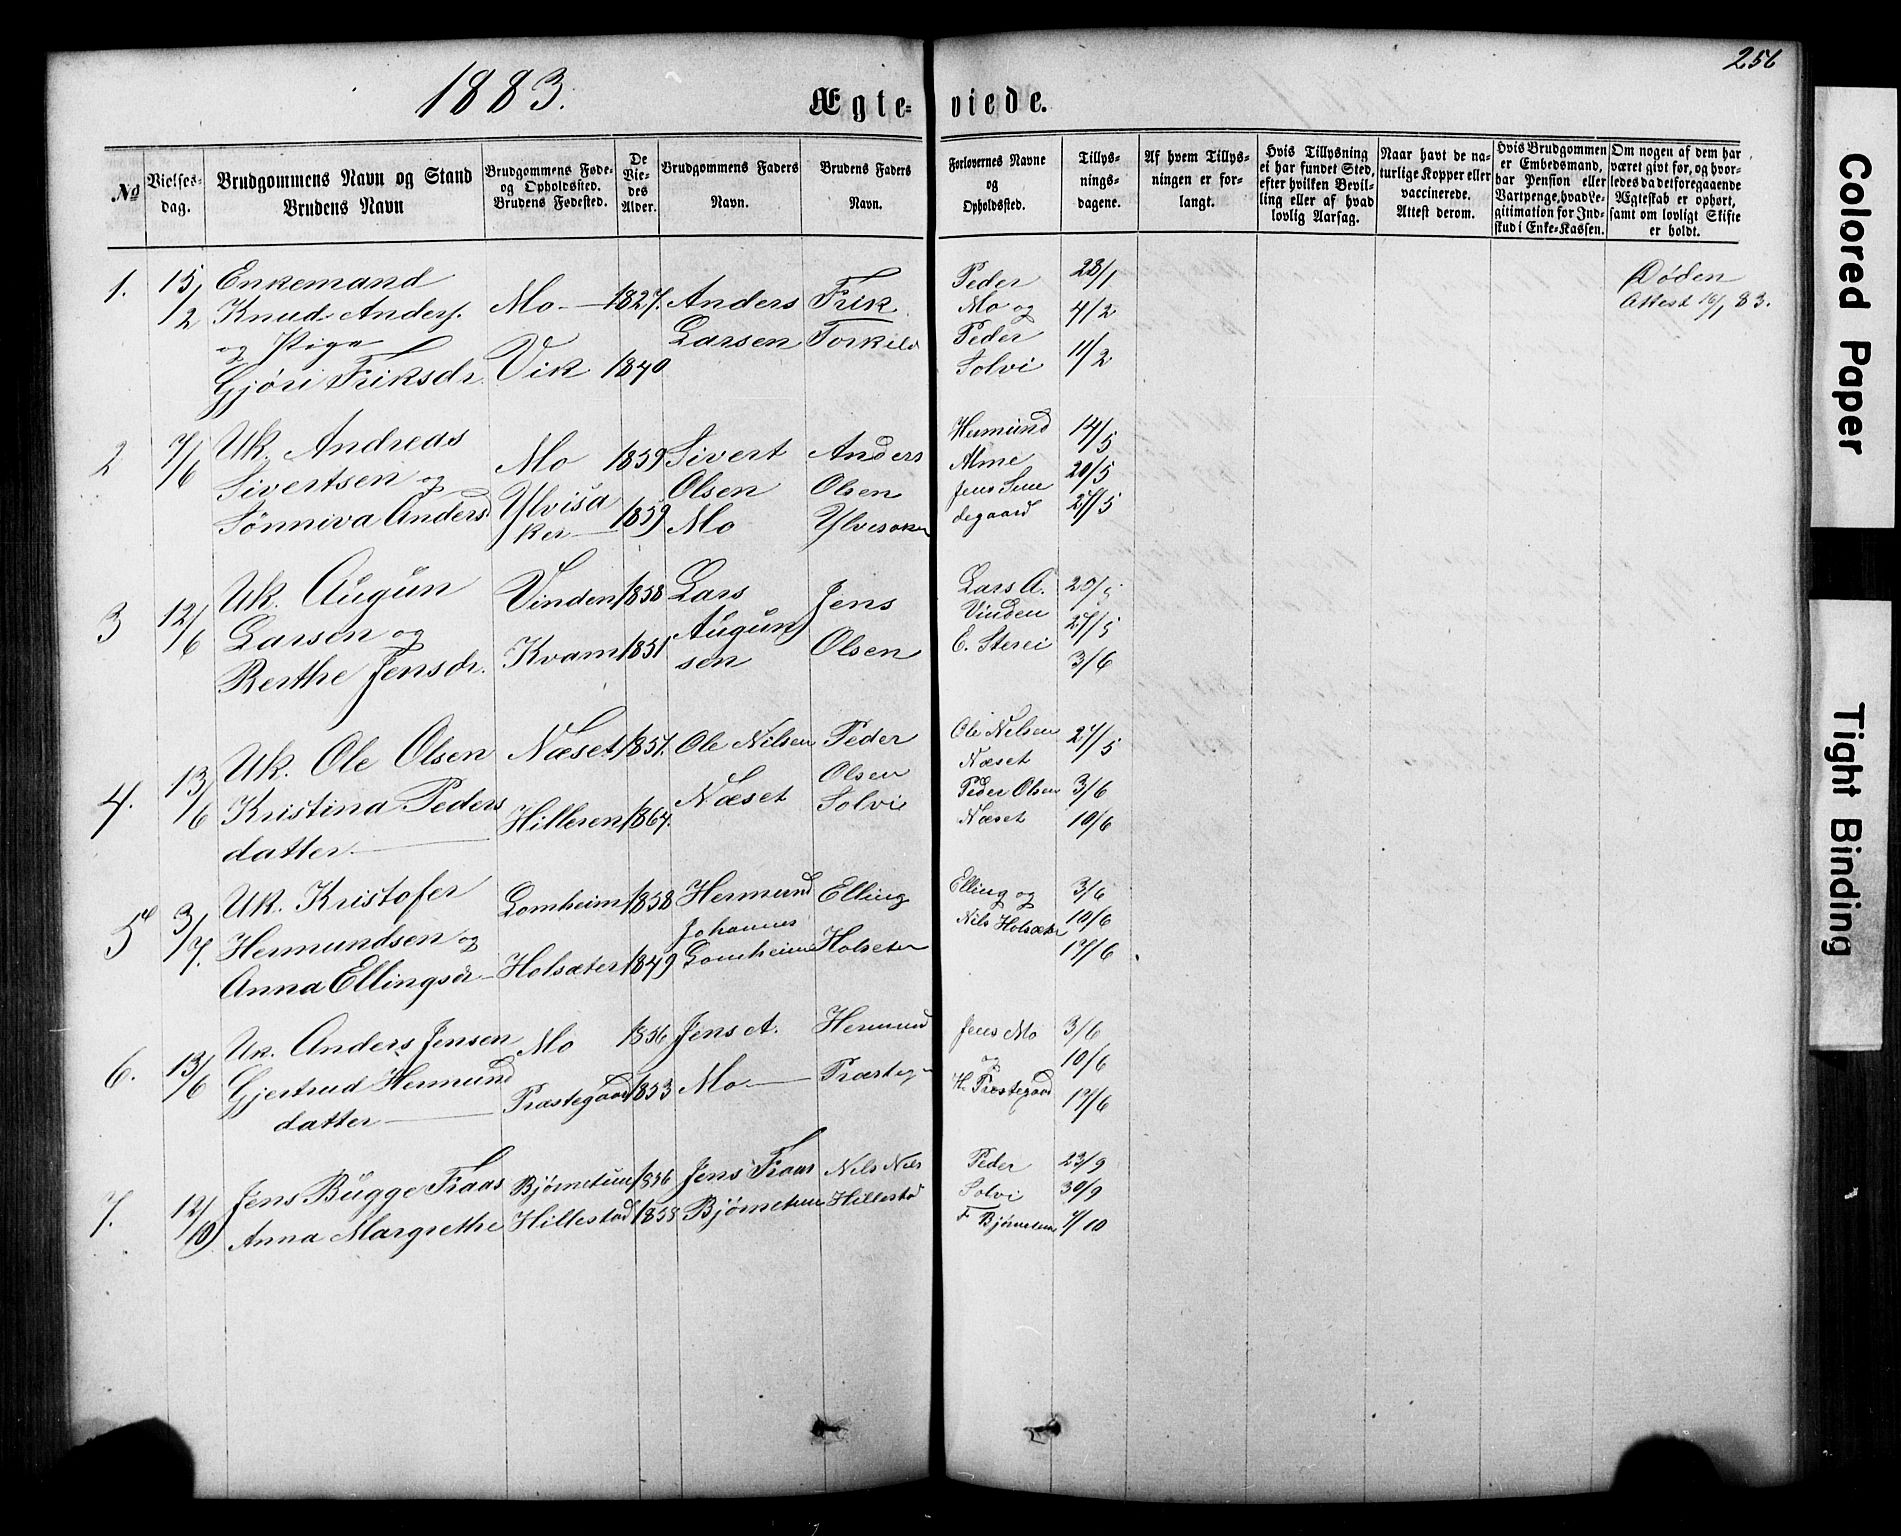 256
1883.
Ægte-viede.
No
Vielses-dag.
Brudgommens Navn og Stand
Brudens Navn
Brudgommens Føde- og Opholdssted.
Brudens Fødested.
De Vie-des Alder.
Brudgommens Faders Navn.
Brudens Faders Navn.
Forlovernes Navne og Opholdssted.
Tillys-nings-dagene.
Af hvem Tillys-ningen er for-langt.
Hvis Tillysning ei har fundet Sted, efter hvilken Bevil-ling eller af hvad lovlig Aarsag.
Naar havt de na-turlige Kopper eller vaccinerede. Attest derom.
Hvis Brudgommen er Embedsmand, har Pension eller Vartpenge, hvad Le-gitimation for Ind-skud i Enke-Kassen.
Om nogen af dem har været givt før, og hvor-ledes da det foregaaende Ægteskab er ophørt, samt om lovligt Skifte er holdt.
1. 15/2 Enkemand
Knud Anders.
og Pige
Gjøri Eriksdr.
Mo 1827.
Vik 1840
Anders
Larsen
Erik
Torkild
Peder
Mo og
Peder
Solvi
28/1
4/2
11/2
Døden
Attest 16/1 83.
2 7/6 Uk. Andreas
Sivertsen og
Sønniva Anders
Mo 1859
Ylvisa
ker 1859
Sivert
Olsen
Mo
Anders
Olsen
Ylvesaker
Hermund
Alme
Jens
degaard
14/5
20/5
27/5
3 12/6 Uk. Augun
Larsen og
Berthe Jensdr.
Vinden 1858
Kvam 1851
Lars
Augun
sen
Jens
Olsen
Lars A.
Vinden
E. Sterei
20/5
27/5
3/6
4. 13/6 Uk. Ole Olsen
Kristina Peders
datter
Næset 1857.
Hilleren 1864.
Ole Nilsen
Næset
Peder
Olsen
Solvi
Ole Nilsen
Næset
Peder Olsen
Næset
27/5
3/6
10/6
5 3/7. Uk. Kristofer
Hermundsen og
Anna Ellingsdr
Lomheim 1858
Holsæter 1849
Hermund
Johannes
Lomheim
Elling
Holseter
Elling og
Nils Holsæter
3/6
10/6
17/6
6. 13/6 Uk. Anders Jensen
Gjertrud Hermund
datter
Mo 1856
Præstegaard 1853
Jens A.
Mo
Hermund
Præsteg
Jens Mo
og
H. Præstegaard
3/6
10/6
17/6
7. 12/10 Jens Bugge Fraas
Anna Margrethe
Bjørnetun 1856
Hillestad 1858
Jens Fraas
Bjørnetun
Nils Nils
Hillestad
Peder
Solvi
F Bjørnetun
23/9
30/9
7/10
Colored Paper
Tight Binding